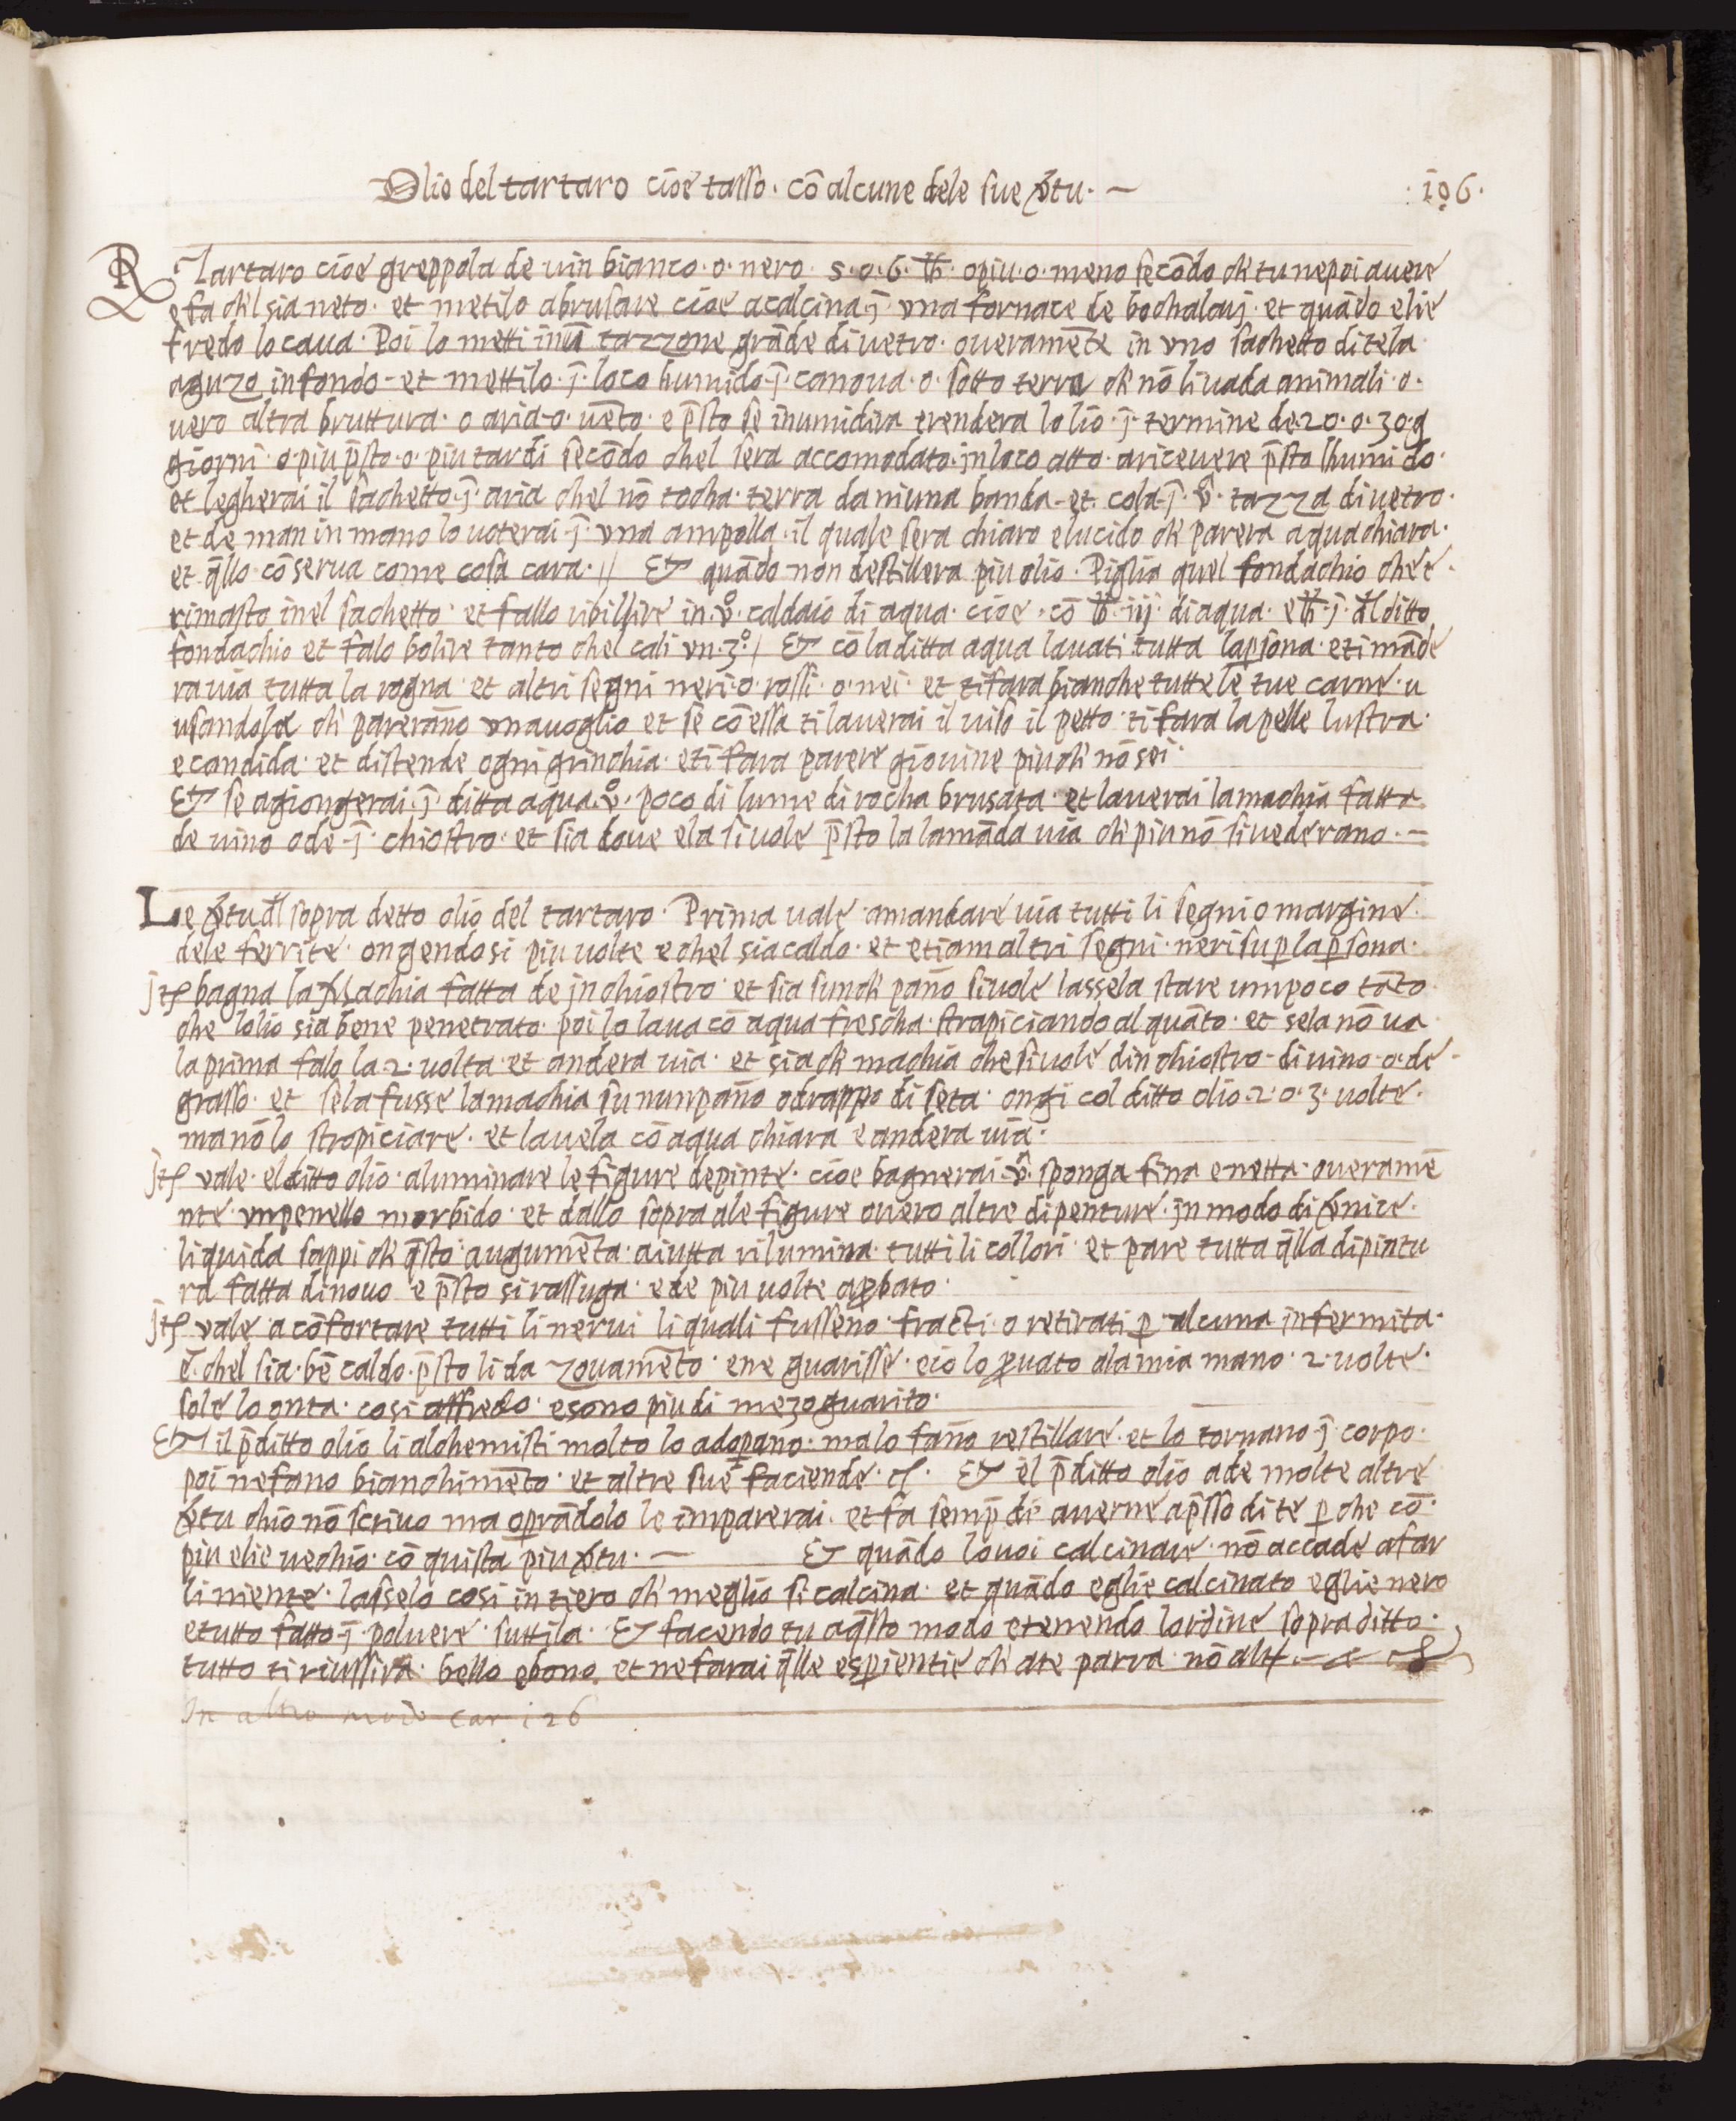 Olio del tartaro cioe tasso · cō alcune dele sue v̄tu · ~
· 106 ·
℞ Tartaro cioe greppola de uin bianco · o · nero · 5 · o · 6 · ℔ · opiu · o · meno secōdo ch' tu ne poi avere
e fa ch'l sia neto · et metilo abrusare cioe acalcinaj̄ · vna fornace de bochalauj · et quādo elie
fredo lo caua · Poi lo metti inū tazzone grāde di uetro · oueramēte in vno sachetto di tela
aguzo in fondo - et mettilo · j̄ · loco humido - j̄ · canoua · o · sotto terra ch' nō li uada animali · o ·
uero altra bruttura · o aria - o · uēto · e p̄sto se inumidira e rendera lo lio · j̄ · termine de · 20 · o · 30 · g
giorni · o · piu p̄sto · o · piu tardi secōdo chel sera accomodato · in loco atto · aricevere p̄sto lhumido ·
et legherai il sachetto · j̄ · aria chel nō tocha · terra da niuna banda - et · cola · j̄ · v̊ · tazza di uetro ·
et de man in mano lo uoterai · j̄ · vna ampolla · il quale sera chiaro e lucido ch' parera aqua chiara ·
et q̄llo cōserua come cosa cara · // Et quādo non destillera piu olio · Piglia quel fondachio che e ·
rimasto inel sachetto · et fallo ribillire in · v̊ · caldaio di aqua · cioe · cō ℔ · iij · di aqua · e ℔ · j · d'l ditto
fondachio et falo bolire tanto chel cali vn · 3° · / Et cō la ditta aqua lauati tutta la p̱sona · e ti māde
ra uia tutta la rogna · et altri segni neri · o · rossi · o · nei · et ti fara bianche tutte le tue carne · u
usandola ch' parerāno vn auoglio et se cō essa ti lauerai il uiso il petto · ti fara la pelle lustra ·
e candida · et distende ogni grinchia · e ti fara parere giouine piu ch' nō sei ·
Et se agiongerai · j̄ · ditta aqua · v̊ · poco di lume di rocha brusata · et lauerai la machia fatta
de uino o de - j̄ · chiostro · et sia doue ela si uole p̄sto la la māda uia ch' piu nō si uederano · –
Le v̄tu d'l sopra detto olio del tartaro · Prima uale amandare uia tutti li segni o margine ·
dele ferrite · ongendosi piu uolte e chel sia caldo · et etiam altri segni · neri sup̱ la p̱sona ·
Jtē bagna la Machia fatta de inchiostro · et sia su nch' pāno si uole lassela stare un poco tāto
che lolio sia bene penetrato · poi lo laua cō aqua frescha · strapiciando al quāto · et se la nō ua
la prima falo la · 2 · uolta · et andera uia · et sia ch' machia che si uole dinchiostro - di uino · o · de ·
grasso · et se la fusse la machia su nun pāno o drappo di seta · ongi col ditto olio · 2 · o · 3 · uolte ·
ma nō lo stropiciare · et lauela cō aqua chiara e andera uia ·
Jtē uale · el ditto olio · aluminare le figure depinte · cioe bagnerai · v̊ · sponga fina e netta · oueramē
nte · vn penello morbido · et dallo sopra ale figure ouero altre dipenture · in modo di v̄nice ·
liquida sappi ch' q̄sto · augumēta · aiutta rilumina · tutti li collori · et pare tutta q̄lla dipintu
ra fatta di nouo e p̄sto si rassuga · e de piu uolte ap̱bato ·
Jtē uale a cōfortare tutti li nerui li quali fusseno · fracti · o retirati p̱ alcuna infermita ·
e · chel sia · bē caldo · p̄sto li da zouamēto · e ne guarisse · e io lo p̱uato ala mia mano · 2 · uolte ·
sole lo onta · cosi affredo · e sono piu di mezo guarito ·
Et il p̄ditto olio li alchemisti molto lo adop̱ano · ma lo fāno restillare · et lo tornano j̄ · corpo ·
poi ne fano bianchimēto · et altre sue faciende · Et il p̄ditto olio a de molte altre
v̄tu chio nō scriuo ma op̱rādolo le imparerai · et fa semp̄ di auerne ap̄sso di te p̱ che cō ·
piu elie uechio · cō quista piu v̄tu · — Et quādo lo uoi calcinare · nō accade a far
li niente · lasselo cosi intiero ch' meglio si calcina · et quādo eglie calcinato eglie nero
e tutto fatto · j̄ · poluere · suttila · Et facendo tu a q̄sto modo e tenendo lordine sopra ditto ·
tutto ti riussira · bello e bono · et ne farai q̄lle esp̱ientie ch' a te parra · nō alt̄ · –
In altro modo car 126